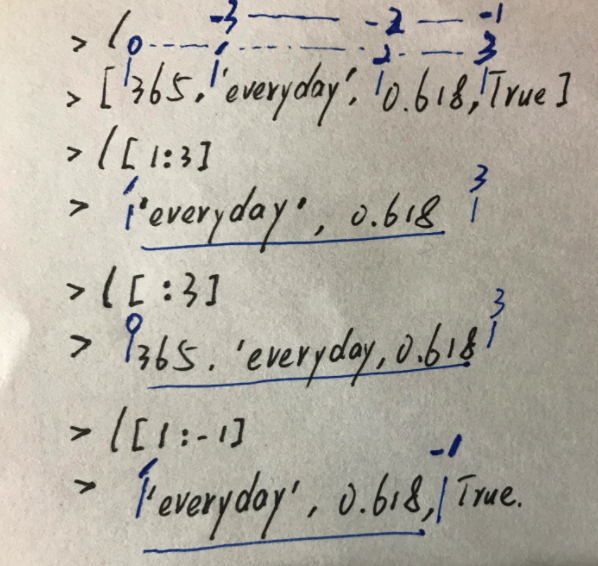 -3 -2 -1
> l
0 1 2 3
> [ 365, 'everyday', 0.618, True ]
> l [ 1:3 ]
> 'everyday', 0.618
3
> l [ :3 ]
0 3
> 365. 'everyday, 0.618
> l [ 1:-1 ]
-1
> 'everyday', 0.618, True.